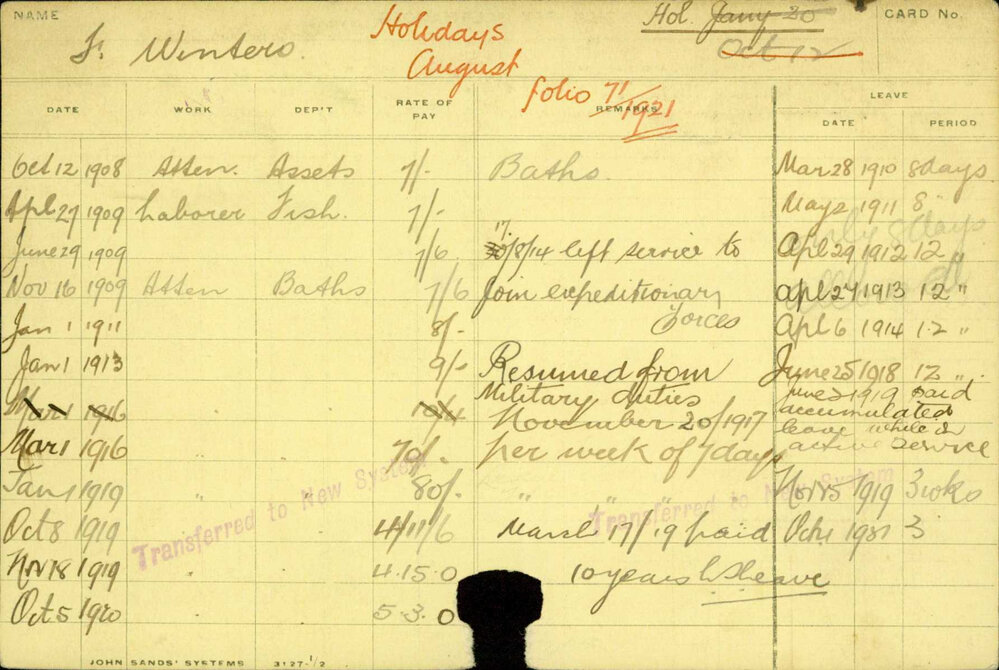 NAME
F. Winters.
Holidays
August
folio 71/1921
Hol. Jany 20
Oct 12
CARD No.
DATE WORK DEP'T RATE OF PAY REMARKS LEAVE
DATE PERIOD
Oct 12 1908 Atten. Assets 7/- Baths. Mar 28 1910 8 days
Apl 27 1909 Laborer Fish. 7/- May 2 1911 8 "
June 29 1909 7/6 /8/14 left service to Apl 29 1912 12 "
Nov 16 1909 Atten Baths 7/6 join expeditionary Apl 27 1913 12 "
forces
Jan 1 1911 8/- Apl 6 1914 12 "
Jan 1 1913 9/- Resumed from June 25 1918 12 "
Military duties
June 2 1919 paid
Mar 1 1916 November 20/1917 accumulated
leave while on
Mar 1 1916 70/- per week of 7 days active service
Jan 1 1919 " " 80/- " " " Nov 5 1919 3 wks
Transferred to New System
Transferred to New System
Oct 8 1919 4/11/6 March 17/19 paid Oct 1 1921 3
Nov 18 1919 " 4.15.0 10 years L S leave
Oct 5 1920 5.3.0
JOHN SANDS' SYSTEMS 3127-1/2